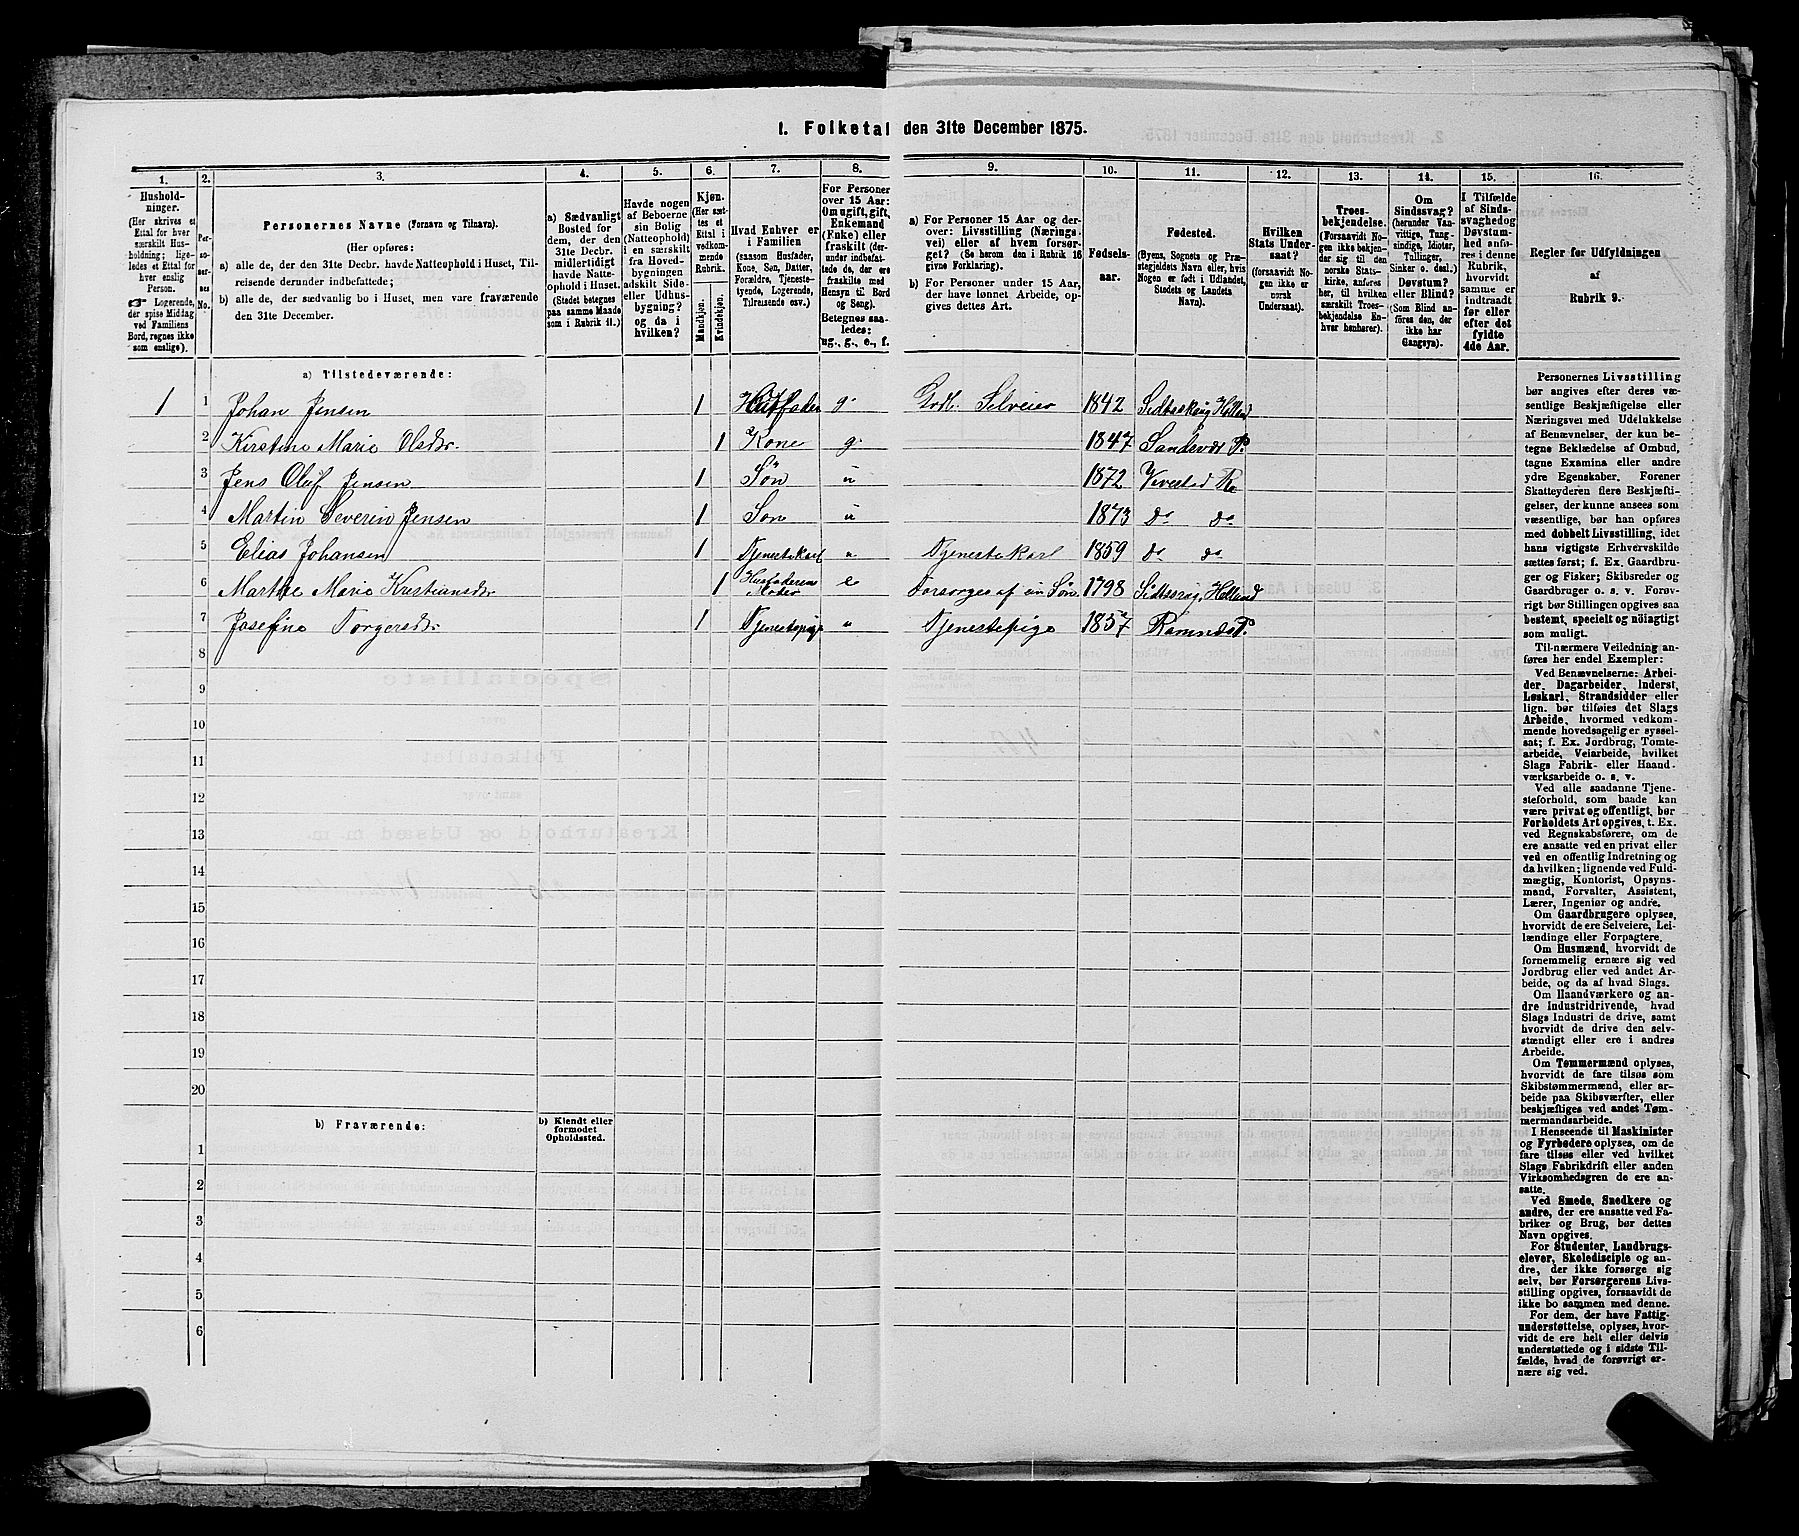 1. Folketal den 31te December 1875.
1. 2. 3. 4. 5. 6. 7. 8. 9. 10. 11. 12. 13. 14. 15. 16.
Husholdninger. (Her skrives et Ettal for hver særskilt Husholdning; ligeledes et Ettal for hver enslig Person. ☞ Logerende, der spise Middag ved Familiens Bord, regnes ikke som enslige).
Personernes No.
Personernes Navne (Fornavn og Tilnavn).
(Her opføres:
a) alle de, der den 31te Decbr. havde Natteophold i Huset, Tilreisende derunder indbefattede;
b) alle de, der sædvanlig bo i Huset, men vare fraværende den 31te December.
a) Sædvanligt Bosted for dem, der den 31te Decbr. midlertidigt havde Natteophold i Huset. (Stedet betegnes paa samme Maade som i Rubrik 11.)
Havde nogen af Beboerne sin Bolig (Natteophold) i en særskilt fra Hovedbygningen adskilt Side- eller Udhusbygning? og da i hvilken?
Kjøn. (Her sættes et Ettal i vedkommende Rubrik.
Mandkjøn. Kvindekjøn.
Hvad Enhver er i Familien (saasom Husfader, Kone, Søn, Datter, Forældre, Tjenestetyende, Logerende, Tilreisende osv.)
For Personer over 15 Aar: Om ugift, gift, Enkemand (Enke) eller fraskilt (derunder indbefattede de, der ere fraskilte med Hensyn til Bord og Seng). Betegnes saaledes: ug., g., e., f.
a) For Personer 15 Aar og derover: Livsstilling (Næringsvei) eller af hvem forsørget? (Se herom den i Rubrik 16 givne Forklaring).
b) For Personer under 15 Aar, der have lønnet Arbeide, opgives dettes Art.
Fødselsaar.
Fødested. (Byens, Sognets og Præstegjeldets Navn eller, hvis Nogen er født i Udlandet, Stedets og Landets Navn).
Hvilken Stats Undersaat? (forsaavidt Nogen ikke er norsk Undersaat).
Troesbekjendelse. (Forsaavidt Nogen ikke bekjender sig til den norske Statskirke, anføres her, til hvilken særskilt Troesbekjendelse Enhver henhører).
Om Sindssvag? (herunder Vanvittige, Tungsindige, Idioter, Tullinger, Sinker o. desl.) Døvstum? eller Blind? (Som Blind anføres den, der ikke har Gangsyn).
I Tilfælde af Sindssvaghed og Døvstumhed anføres i denne Rubrik, hvorvidt samme er indtraadt før eller efter det fyldte 4de Aar.
Regler for Udfyldningen af Rubrik 9.
a) Tilstedeværende:
1 1 Johan Jensen 1 Husfader g. Gbr. Selveier 1842
2 Kirstine Marie Olsdr. 1 Kone g. 1847 Sandeværs P.
3 Jens Oluf Jensen 1 Søn u 1872 Vivestad
4 Martin Severin Jensen 1 Søn u 1873 do do
5 Elias Johansen 1 Tjenestekarl u Tjenestekarl 1859 do do
6 Marthe Marie Kristiansdr 1 Husfaderens Moder e Forsørges af sin Søn 1798
7 Josefine Torgersdr 1 Tjenestepige u Tjenestepige 1857 Ramnæs P.
8
9
10
11
12
13
14
15
16
17
18
19
20
b) Fraværende:
b) Kjendt eller formodet Opholdssted.
1
2
3
4
5
6
Personernes Livsstilling
bør angives efter deres væ-
sentlige Beskjæftigelse eller
Næringsvei med Udelukkelse
af Benævnelser, der kun be-
tegne Beklædelse af Ombud,
tagne Examina eller andre
ydre Egenskaber. Forener
Skatteyderen flere Beskjæfti-
gelser, der kunne ansees som
væsentlige, bør han opføres
med dobbelt Livsstilling, idet
hans vigtigste Erhvervskilde
sættes først; f. Ex. Gaardbru-
ger og Fisker; Skibsreder og
Gaardbruger o. s. v. Forøv-
rigt bør Stillingen opgives saa
bestemt, specielt og nöiagtigt
som muligt.
Til nærmere Veiledning an-
føres her endel Exempler:
Ved Benævnelserne: Arbei-
der, Dagarbeider, Inderst,
Løskarl, Strandsidder eller
lign. bør tilføies det Slags
Arbeide, hvormed vedkom-
mende hovedsagelig er syssel-
sat; f. Ex. Jordbrug, Tomte-
arbeide, Veiarbeide, hvilket
Slags Fabrik- eller Haand-
værksarbeide o. s. v.
Ved alle saadanne Tjene-
steforhold, som baade kan
være privat og offentligt, bør
Forholdets Art opgives, t. Ex.
ved Regnskabsførere, om de
ere ansatte ved en privat eller
ved en offentlig Indretning og
da hvilken; lignende ved Fuld-
mægtig, Kontorist, Opsyns-
mand, Forvalter, Assistent,
Lærer, Ingeniør og andre.
Om Gaardbrugere oplyses,
hvorvidt de ere Selveiere, Lei-
lændinge eller Forpagtere.
Om Husmænd, hvorvidt de
fornemmelig ernære sig ved
Jordbrug eller ved andet Ar-
beide, og da af hvad Slags.
Om Haandværkere og an-
dre Industridrivende, hvad
Slags Industri de drive, samt
hvorvidt de drive den selv-
stændigt eller ere i andres
Arbeide.
Om Tømmermænd oplyses,
hvorvidt de fare tilsøs som
Skibstømmermænd, eller ar-
beide paa Skibsværfter, eller
beskjæftiges ved andet Tøm-
mermandsarbeide.
I Henseende til Maskinister
og Fyrbødere oplyses, om de
fare tilsøs eller ved hvilket
Slags Fabrikdrift eller anden
Virksomhedsgren de ere an-
satte.
Ved Smede, Snedkere og
andre, der ere ansatte ved Fa-
briker og Brug, bør dettes
Navn opgives.
For Studenter, Landbrugs-
elever, Skoledisciple og an-
dre, der ikke forsørge sig
selv, bør Forsørgerens Livs-
stilling opgives, forsaavidt de
ikke bo sammen med denne.
For dem, der have Fattig-
understøttelse, oplyses, hvor-
vidt de ere helt eller delvis
understøttede og i sidste Til-
fælde, hvad de forøvrigt er-
nære sig ved.